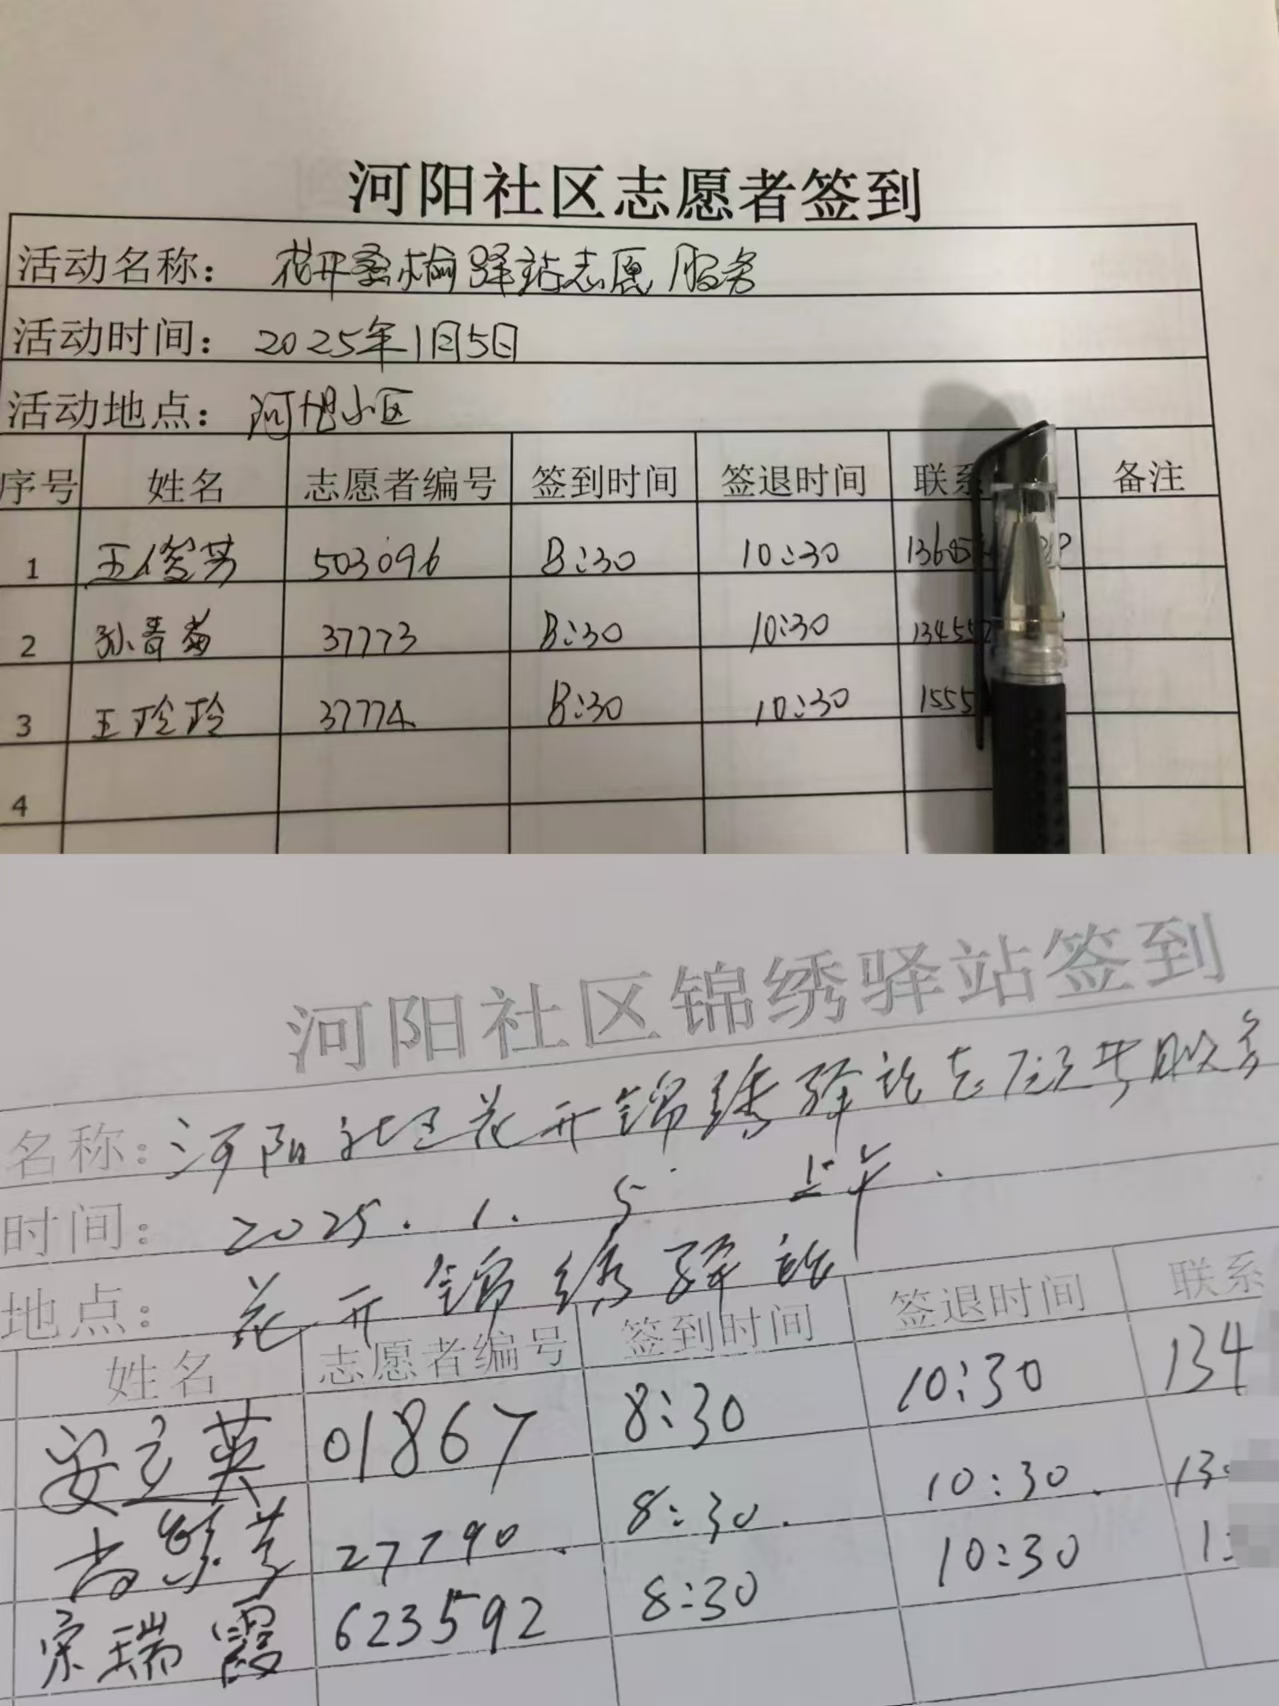 河阳社区志愿者签到
活动名称： 花开桑榆驿站志愿服务
活动时间： 2025年1月5日
活动地点： 河阳小区
序号 姓名 志愿者编号 签到时间 签退时间 联系 备注
1 王俊芳 503096 8:30 10:30
2 孙青菊 37773 8:30 10:30
3 王玲玲 37774 8:30 10:30 1555
4
河阳社区锦绣驿站签到
名称: 河阳社区花开锦绣驿站志愿者服务
时间: 2025.1.5 上午.
地点: 花开锦绣驿站
姓名 志愿者编号 签到时间 签退时间 联系
安立英 01867 8:30 10:30 134
27790. 8:30. 10:30. 13
宋瑞霞 623592 8:30 10:30 1